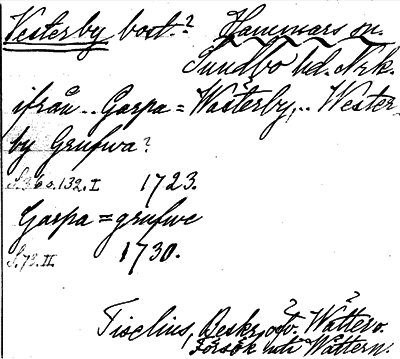 Vesterby bost.? Hammars sn.
Sundbo hd. Nrk.
ifrån .. Gaspa = Wästerby, .. Wester
by Grufwa?
S. 360.132. I 1723.
Gaspa = grufwe
S. 73. II. 1730.
Tiselius, Beskr. öfv. Wättern.
Försök uti Wättern.